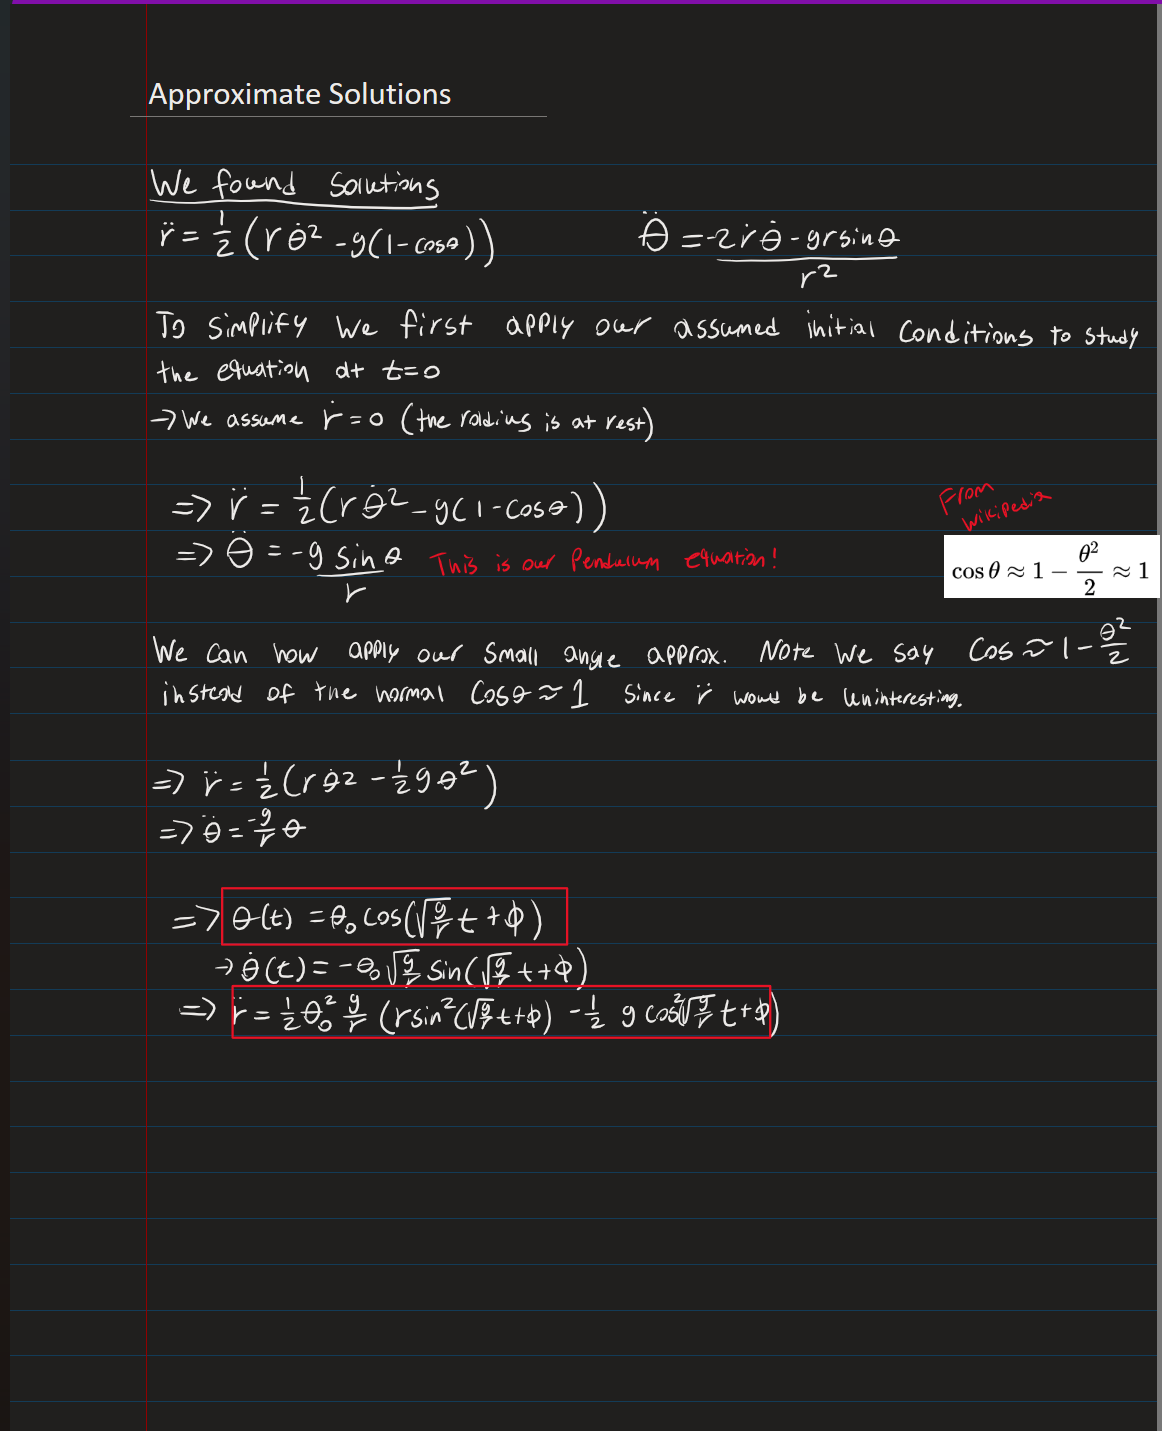 Approximate Solutions
We found Solutions
r̈ = 1/2 (r θ̇² - g(1 - cosθ))    θ̈ = (-2ṙθ̇ - gr sinθ)/r²
To simplify we first apply our assumed initial conditions to study
the equation at t=0
→ We assume ṙ = 0 (the radius is at rest)
=> r̈ = 1/2 (r θ̇² - g(1 - cosθ))
From
Wikipedia
=> θ̈ = -g sinθ/r  This is our Pendulum equation!
cos θ ≈ 1 − θ²/2 ≈ 1
We can now apply our small angle approx. Note we say Cos ≈ 1 - θ²/2
instead of the normal Cosθ ≈ 1 Since r̈ would be uninteresting.
=> r̈ = 1/2 (r θ̇² - 1/2 g θ²)
=> θ̈ = -g/r θ
=> θ(t) = θ₀ cos(√(g/r) t + ϕ)
→ θ̇(t) = -θ₀ √(g/r) sin(√(g/r) t + + ϕ)
=> r̈ = 1/2 θ₀² g/r (r sin²(√(g/r) t + ϕ) - 1/2 g cos²(√(g/r) t + ϕ)